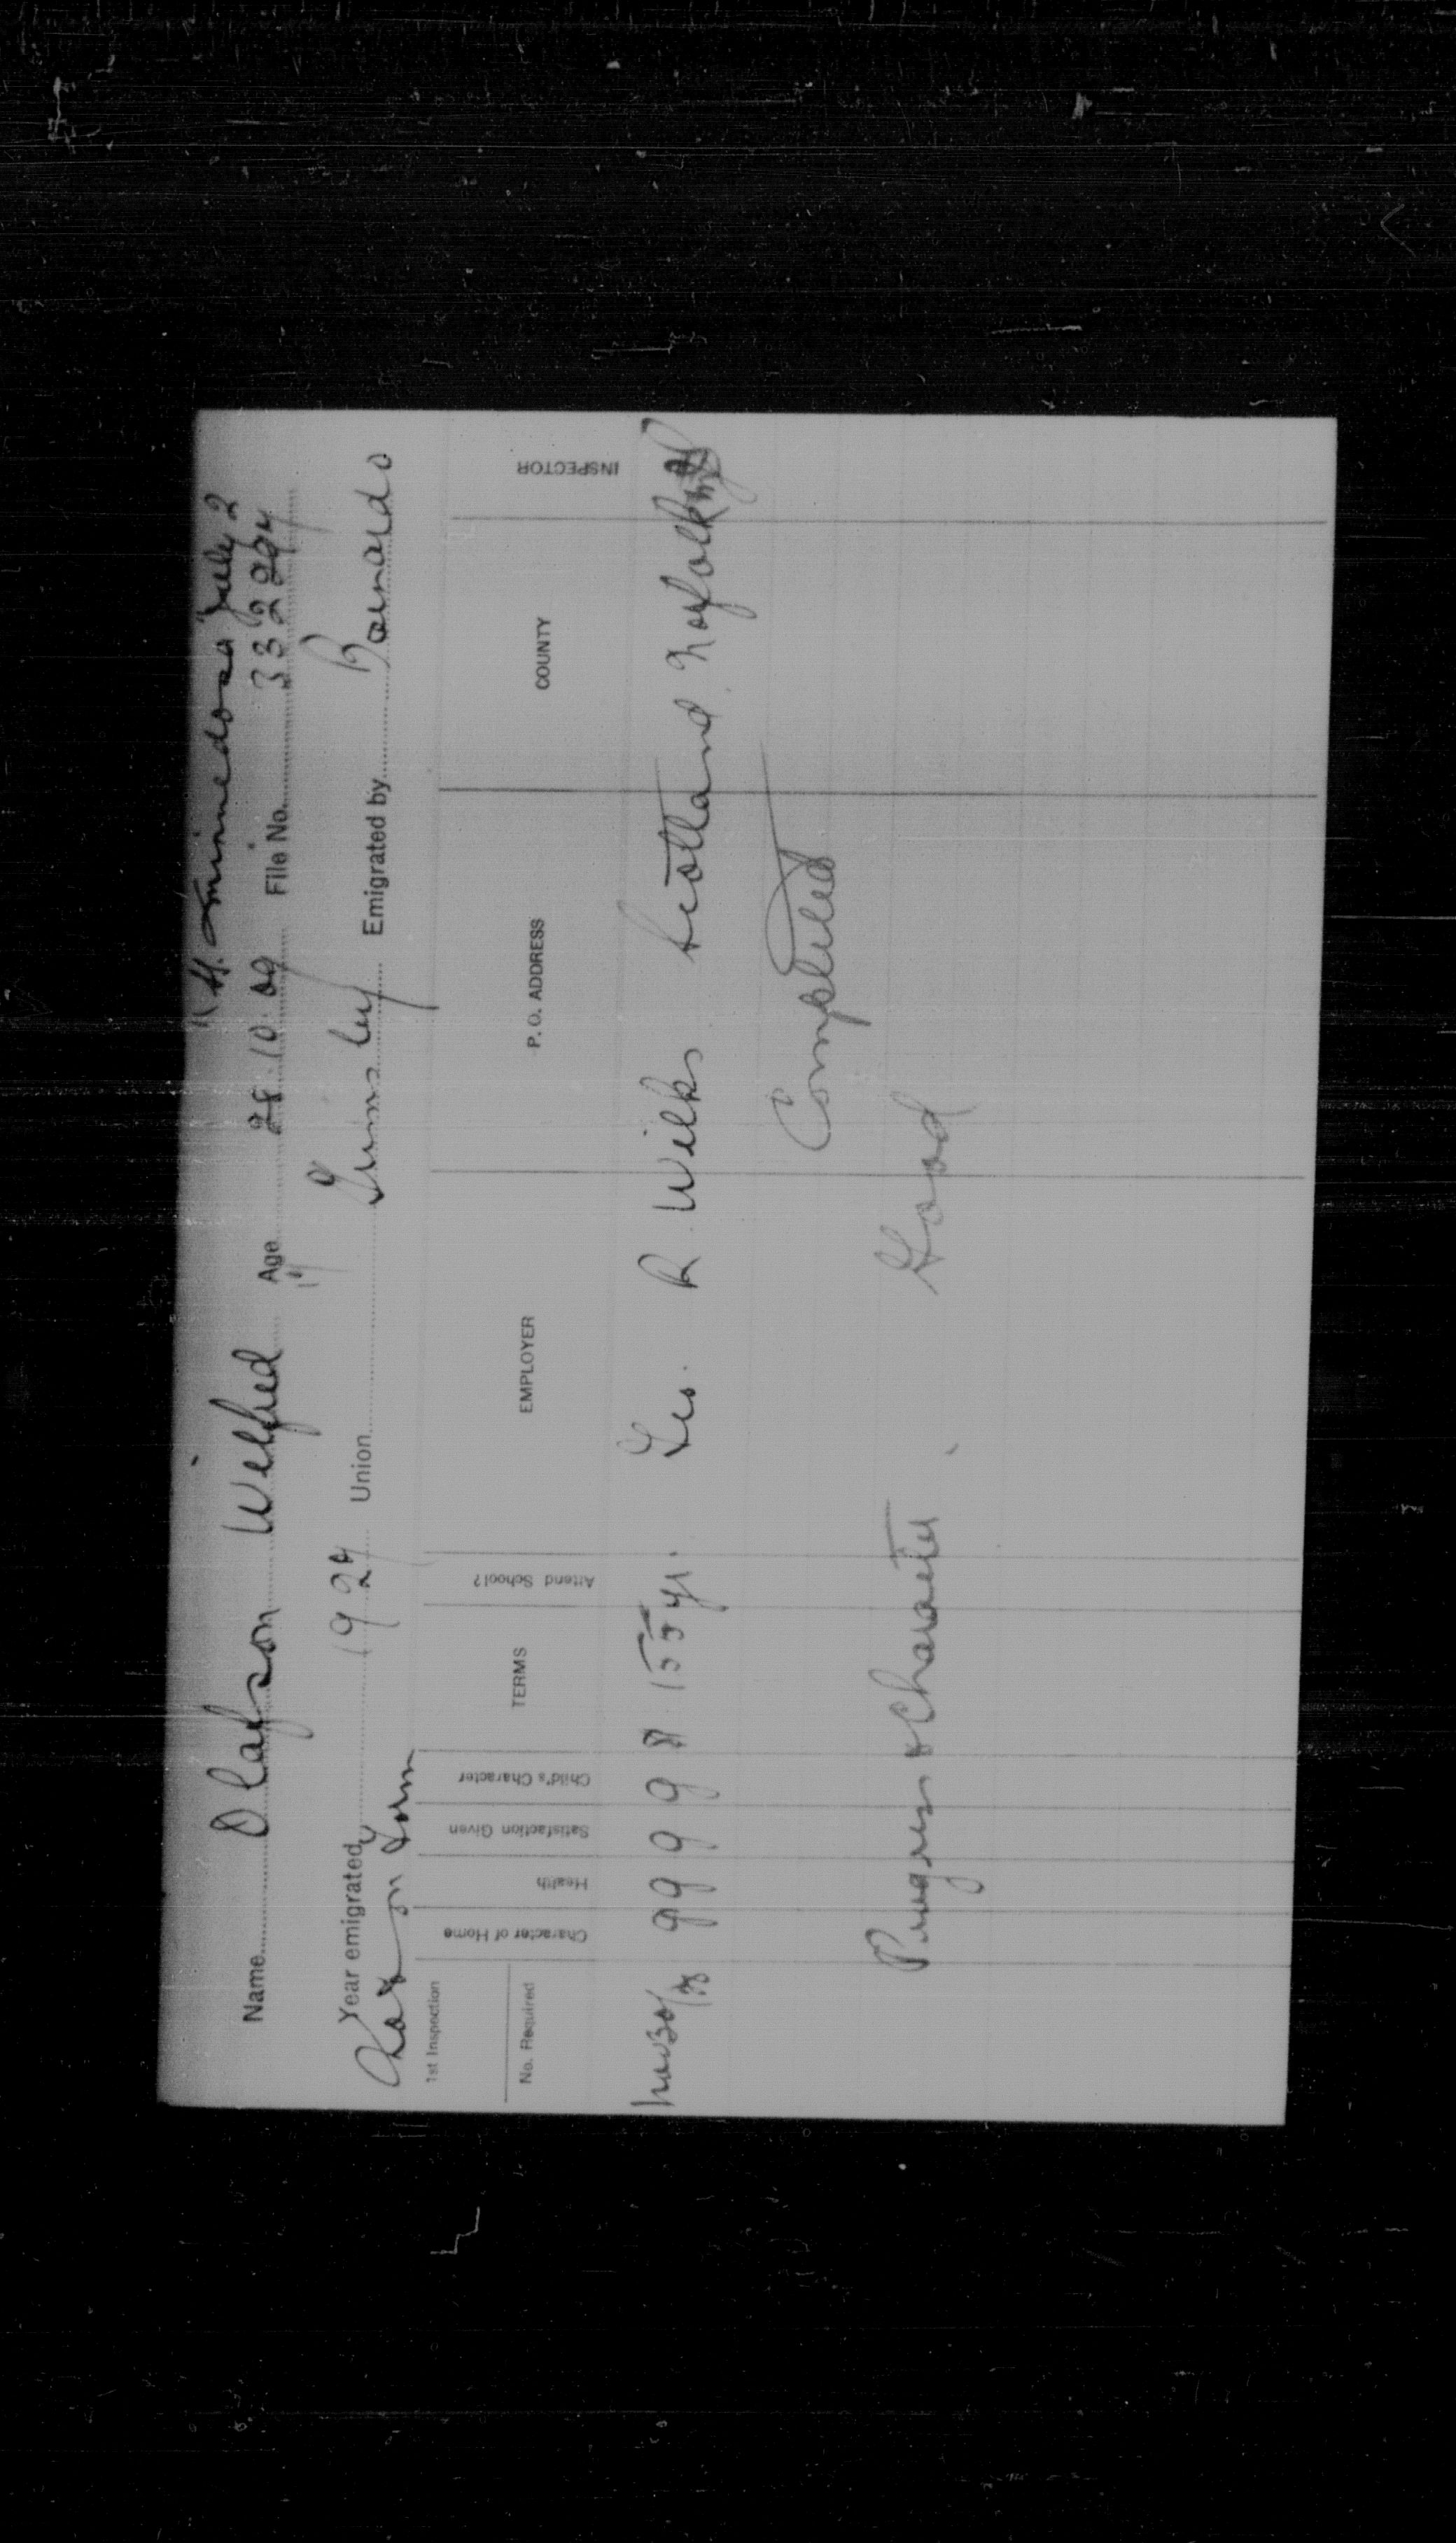 Minnedosa July 2
Name Olafson Wilfred Age 28 10 09 File No. 332994
17
Year emigrated 1927 Union Grimsby Emigrated by Barnardo
on Farm
1st Inspection
No. Required Character of Home Health Satisfaction Given Child's Character TERMS Attend School? EMPLOYER P. O. ADDRESS COUNTY INSPECTOR
Nov 30/28 g g g g 155 yr. Geo. R Wilks Scotland Norfolk
Completed
Progress & Character Good